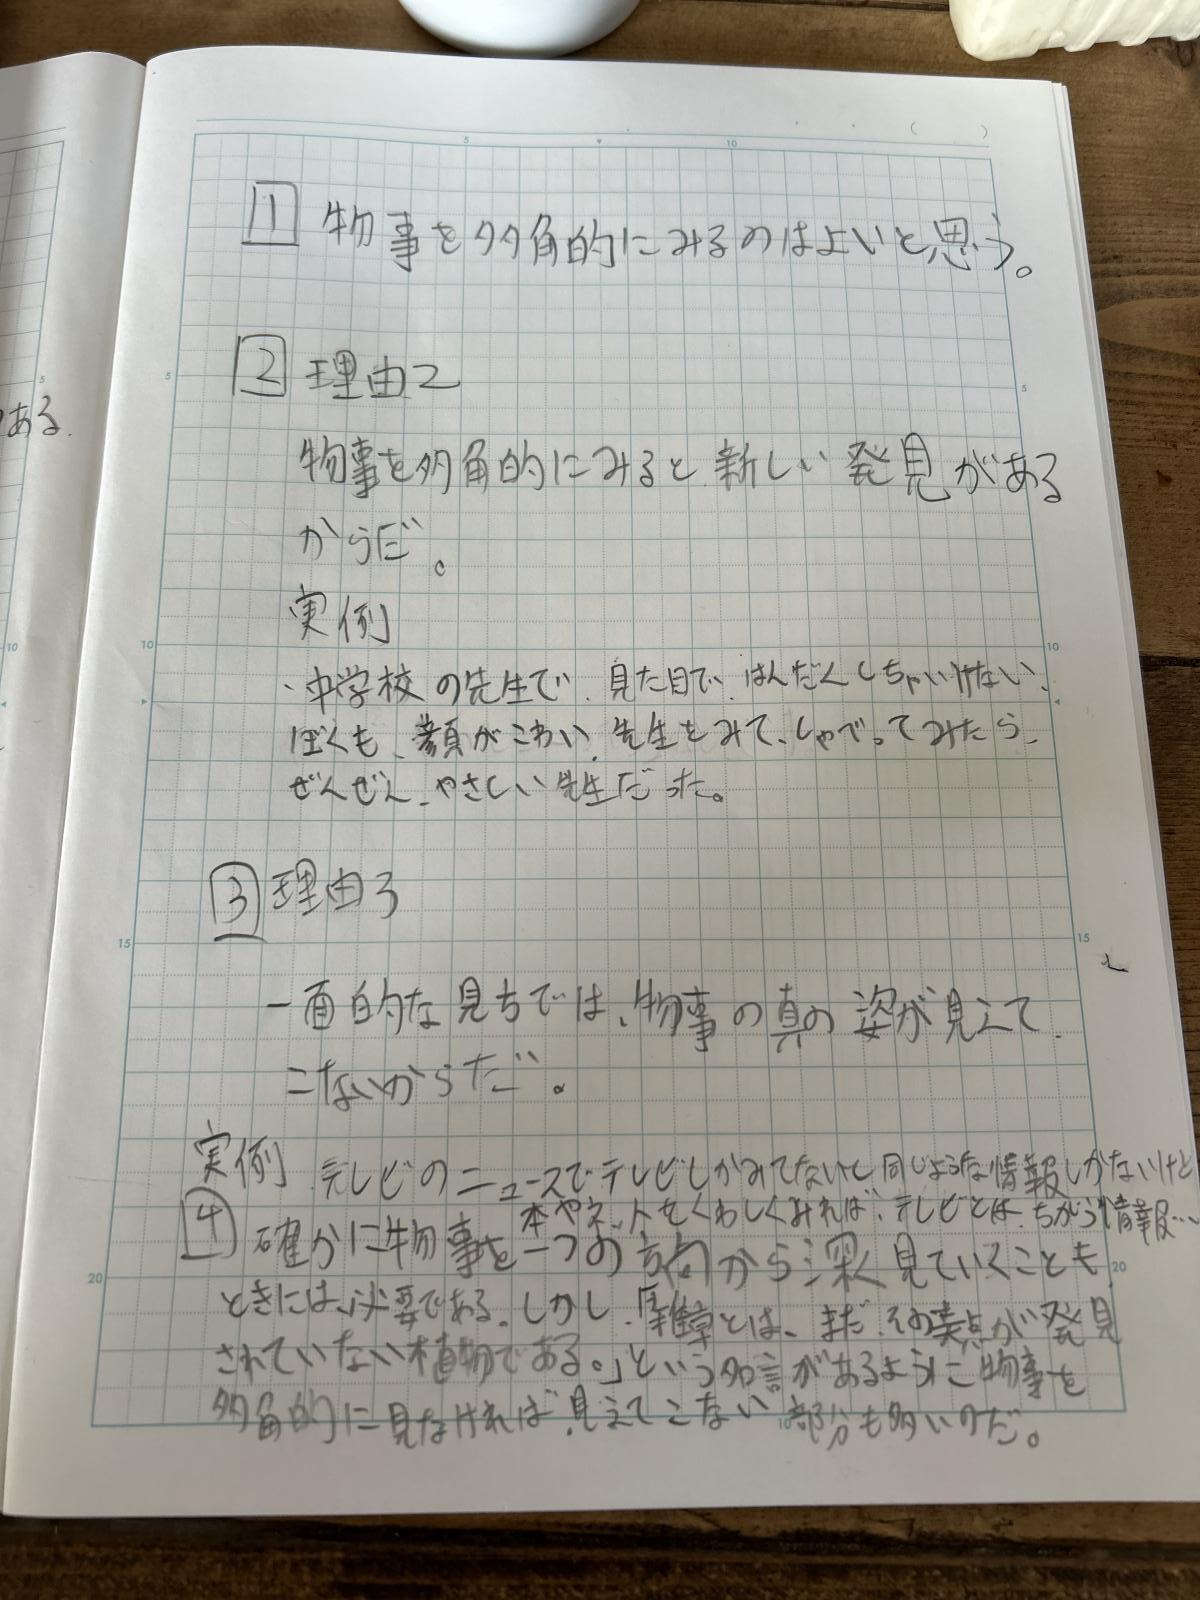 ( )
5
10
1 物事を多角的にみるのはよいと思う。
2 理由2
5
5
5
ある.
物事を多角的にみると新しい発見がある
からだ。
実例
10
10
10
・中学校の先生で、見た目で、はんだくしちゃいけない、
ぼくも、顔がこわい、先生をみて、しゃべってみたら、
ぜんぜん、やさしい先生だった。
3 理由3
15
15
一面的な見ちでは、物事の真の姿が見えて
こないからだ。
実例 テレビのニュースでテレビしかみてないと同じような情報しかないけと
本やネットをくわしくみれば、テレビとは、ちがう情報…
4 確かに物事を一つの方向から深く見ていくことも
20
20
ときには、必要である。しかし、「雑草とは、まだ、その美点が発見
されていない植物である。」という名言があるように物事を
多角的に見なければ、見えてこない部分も多いのだ。
10